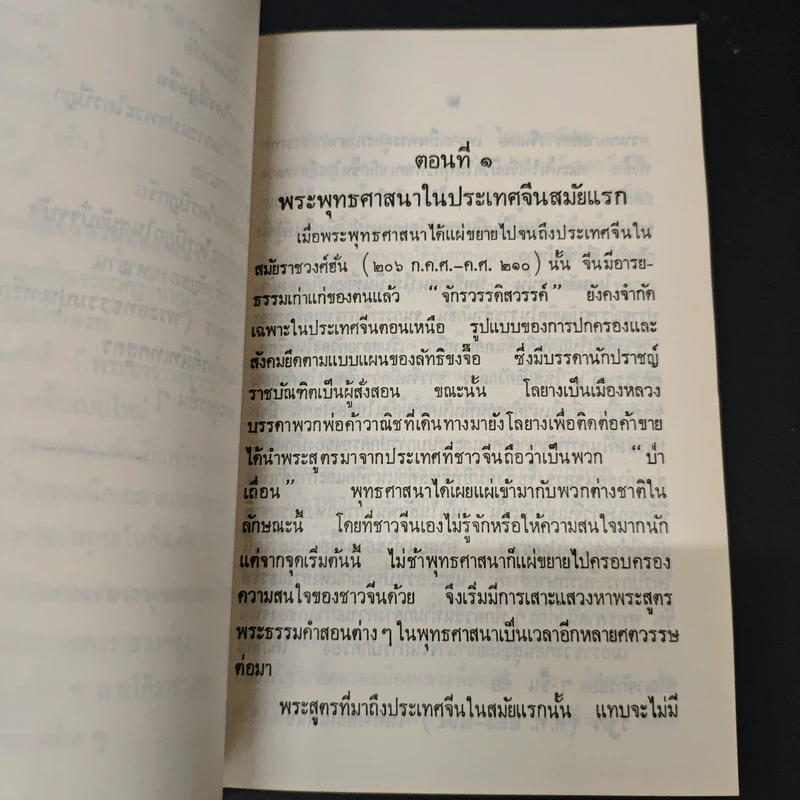 ตอนที่ ๑
พระพุทธศาสนาในประเทศจีนสมัยแรก
เมื่อพระพุทธศาสนาได้แผ่ขยายไปจนถึงประเทศจีนใน
สมัยราชวงศ์ฮั่น (๒๐๖ ก.ค.ศ.-ค.ศ. ๒๑๐) นั้น จีนมีอารย-
ธรรมเก่าแก่ของตนแล้ว “จักรวรรดิสวรรค์” ยังคงจำกัด
เฉพาะในประเทศจีนตอนเหนือ รูปแบบของการปกครองและ
สังคมยึดตามแบบแผนของลัทธิขงจื๊อ ซึ่งมีบรรดานักปราชญ์
ราชบัณฑิตเป็นผู้สั่งสอน ขณะนั้น โลยางเป็นเมืองหลวง
บรรดาพวกพ่อค้าวาณิชที่เดินทางมายังโลยางเพื่อติดต่อค้าขาย
ได้นำพระสูตรมาจากประเทศที่ชาวจีนถือว่าเป็นพวก “ป่า
เถื่อน” พุทธศาสนาได้เผยแผ่เข้ามากับพวกต่างชาติใน
ลักษณะนี้ โดยที่ชาวจีนเองไม่รู้จักหรือให้ความสนใจมากนัก
แต่จากจุดเริ่มต้นนี้ ไม่ช้าพุทธศาสนาก็แผ่ขยายไปครอบครอง
ความสนใจของชาวจีนด้วย จึงเริ่มมีการเสาะแสวงหาพระสูตร
พระธรรมคำสอนต่าง ๆ ในพุทธศาสนาเป็นเวลาอีกหลายศตวรรษ
ต่อมา
พระสูตรที่มาถึงประเทศจีนในสมัยแรกนั้น แทบจะไม่มี